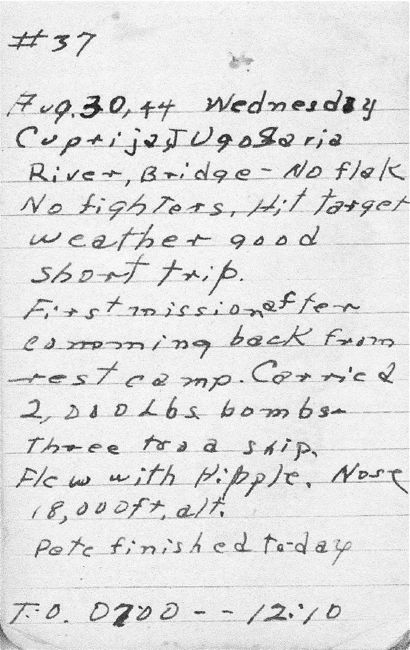 #37
Aug. 30, 44 Wednesday
Cuprija, JUgoslaria
River, Bridge - No flak
No fighters, Hit target
weather good
short trip.
First mission after
comming back from
rest camp. Carried
2,000 Lbs bombs-
Three too a ship.
Flew with Hipple. Nose
18,000ft, alt.
Pete finished to-day
T.O. 0700 -- 12:10